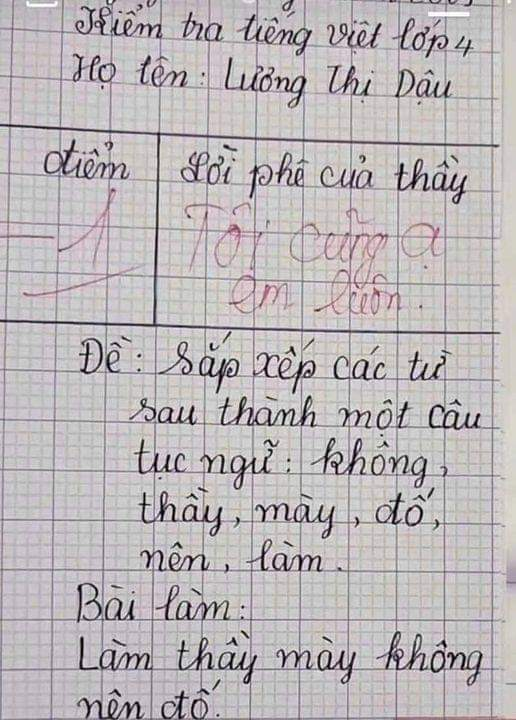 Kiểm tra tiếng việt lớp 4
Họ tên: Lường Thị Dậu
điểm
Lời phê của thầy
-1
Tôi cũng ạ
em luôn.
Đề: Sắp xếp các từ
sau thành một câu
tục ngữ: không,
thầy, mày, đố,
nên, làm.
Bài làm:
Làm thầy mày không
nên đố.